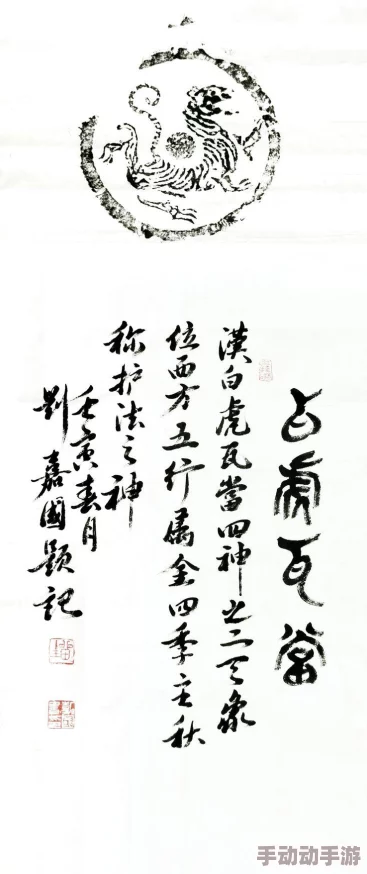 白虎瓦當
漢白虎瓦當四神之二天象
位西方五行属金四季主秋
称护法之神
壬寅春月
刘嘉國题记
手动动手游